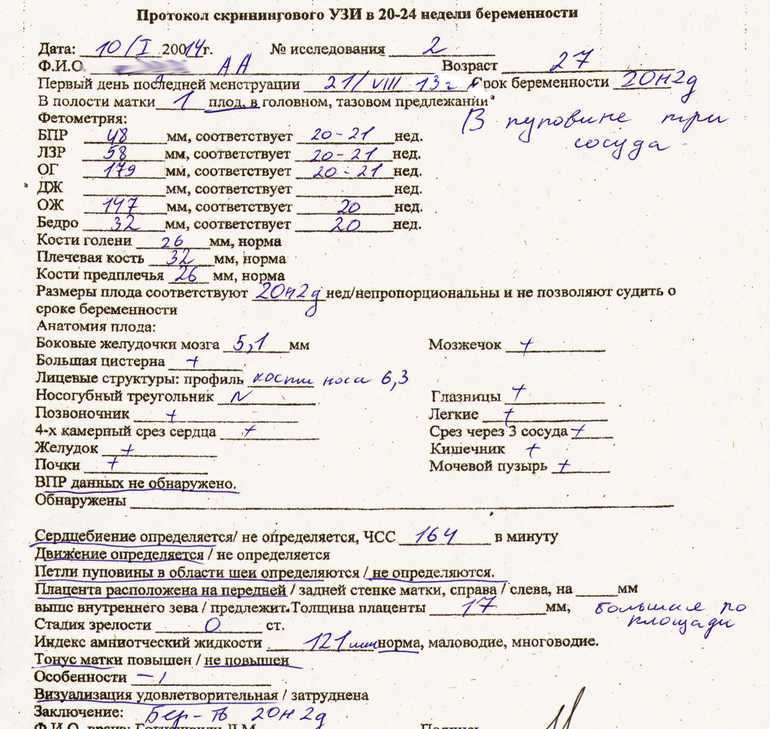 Протокол скринингового УЗИ в 20-24 недели беременности
Дата: 10/I 20014г. № исследования 2
Ф.И.О. АА Возраст 27
Первый день последней менструации 21/VIII 13г. Срок беременности 20н2д
В полости матки 1 плод, в головном, тазовом предлежании
Фетометрия:
В пуповине три сосуда
БПР 48 мм, соответствует 20-21 нед.
ЛЗР 58 мм, соответствует 20-21 нед.
ОГ 179 мм, соответствует 20-21 нед.
ДЖ мм, соответствует нед.
ОЖ 147 мм, соответствует 20 нед.
Бедро 32 мм, соответствует 20 нед.
Кости голени 26 мм, норма
Плечевая кость 32 мм, норма
Кости предплечья 26 мм, норма
Размеры плода соответствуют 20н2д нед/непропорциональны и не позволяют судить о
сроке беременности
Анатомия плода:
Боковые желудочки мозга 5,1 мм Мозжечок +
Большая цистерна +
Лицевые структуры: профиль кости носа 6,3
Носогубный треугольник N Глазницы +
Позвоночник + Легкие +
4-х камерный срез сердца + Срез через 3 сосуда +
Желудок + Кишечник +
Почки + Мочевой пузырь +
ВПР данных не обнаружено.
Обнаружены
Сердцебиение определяется/ не определяется, ЧСС 164 в минуту
Движение определяется / не определяется
Петли пуповины в области шеи определяются / не определяются.
Плацента расположена на передней / задней стенке матки, справа / слева, на мм
выше внутреннего зева / предлежит. Толщина плаценты 17 мм, большая по площади
Стадия зрелости 0 ст.
Индекс амниотческий жидкости 121 мм норма, маловодие, многоводие.
Тонус матки повышен / не повышен
Особенности –
Визуализация удовлетворительная / затруднена
Заключение: Бер-ть 20н2д
Ф.И.О. врача: